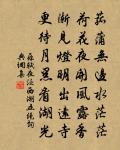 菰蒲無邊水茫茫
荷花夜開風露香
漸見燈明出遠寺
更待月黑看湖光
蘇軾夜泛西湖五絕